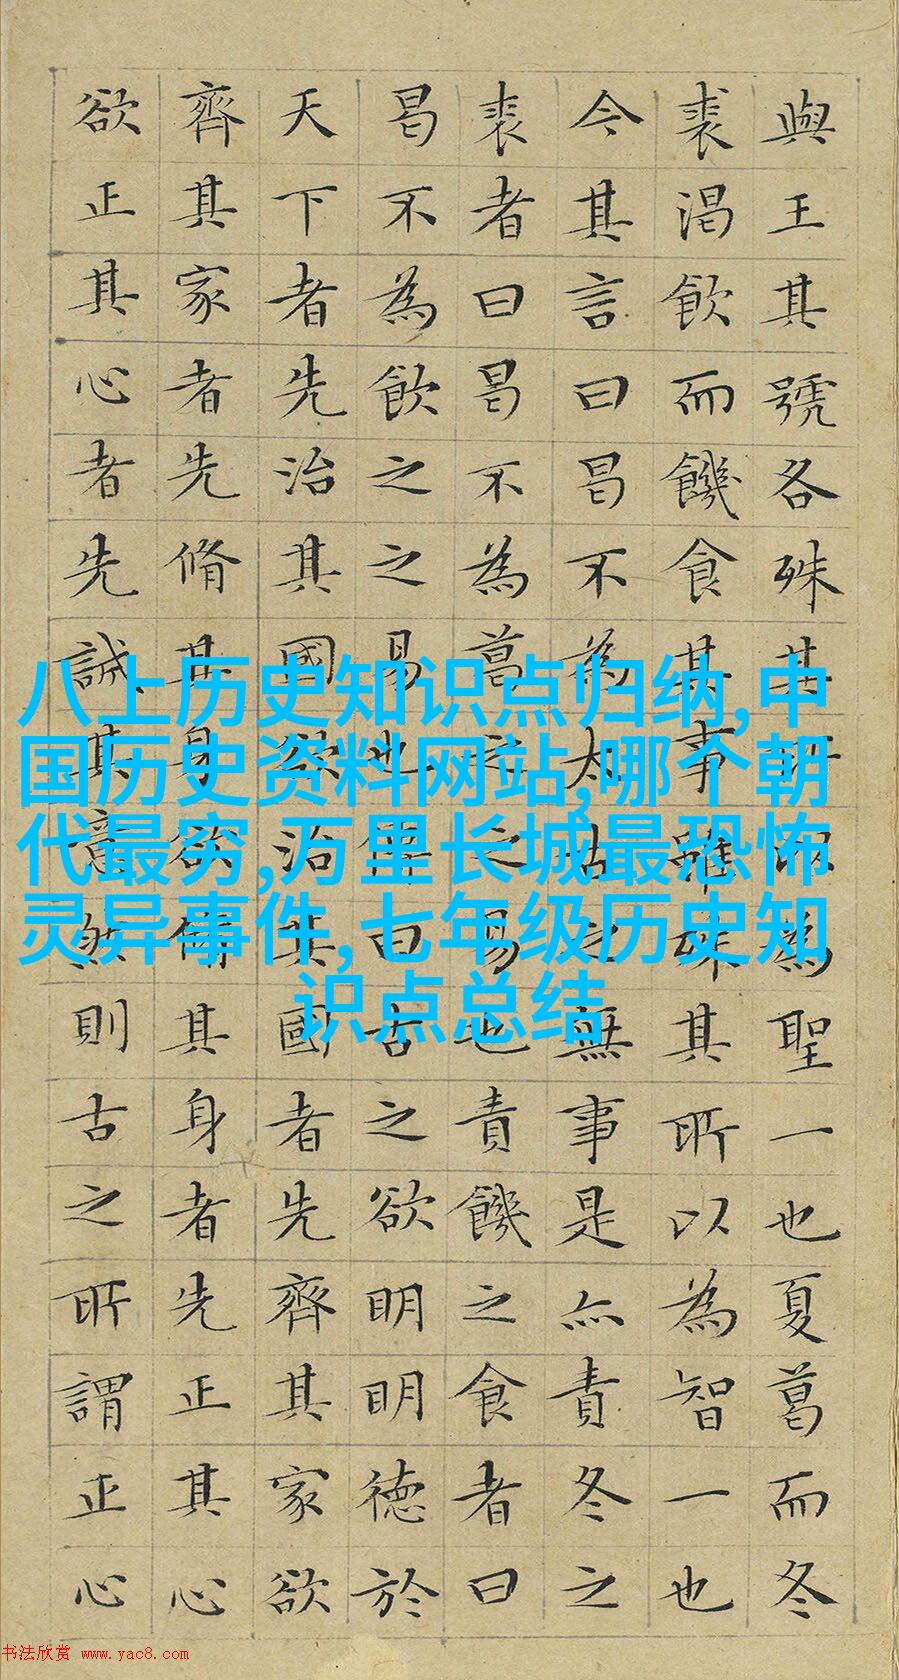 與王其號各殊其所以為聖一也夏葛而冬
裘渴飲而饑食其事雖殊其所以為智一也
今其言曰曷不為太古之無事是亦責冬之
裘者曰曷不為葛之之易也責饑之食者曰
曷不為飲之之易也傳曰古之欲明明德於
天下者先治其國欲治其國者先齊其家欲
齊其家者先脩其身欲脩其身者先正其心
欲正其心者先誠其意然則古之所謂正心
八上历史知识点归纳,中
国历史资料网站,哪个朝
代最穷,万里长城最恐怖
灵异事件,七年级历史知
识点总结
书法欣赏 www.yac8.com